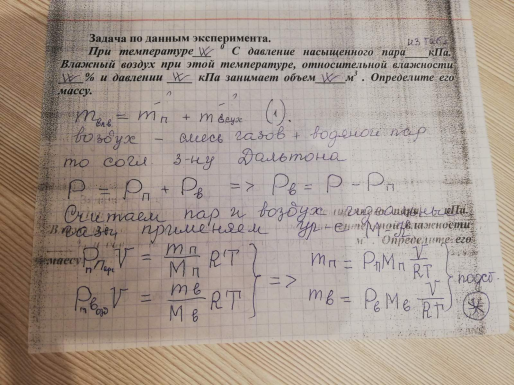 Задача по данным эксперимента.
из табл
При температуре W ⁰ С давление насыщенного пара ____ кПа.
Влажный воздух при этой температуре, относительной влажности
W % и давлении W кПа занимает объем W м³ . Определите его
массу.
mвлв = mп + mвсух (1).
воздух - смесь газов + водяной пар
то согл з-ну Дальтона
P = Pп + Pв => Pв = P - Pп
Считаем пар и воздух
применяем ур-е
V = mп/Mп RT => mп = PпMп V/RT
V = mв/Mв RT mв = PвMв V/RT
подст.